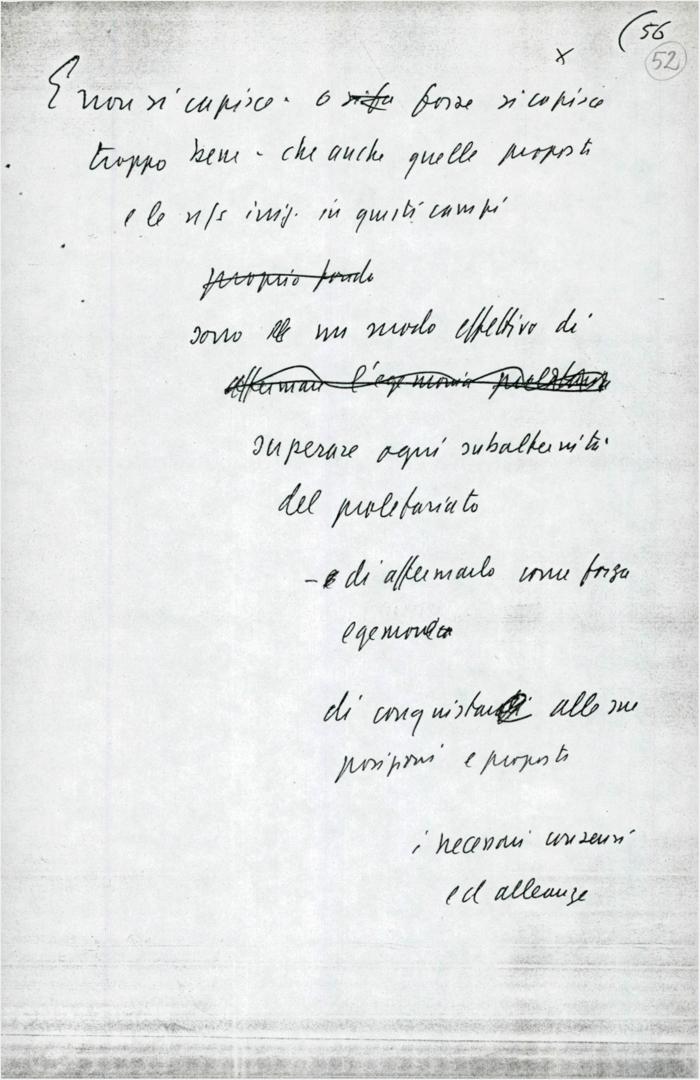 (56
52
x
E non si capisce - o forse si capisce
troppo bene - che anche quelle proposte
e le ns/s iniz. in questi campi
proprio fondo
sono un modo effettivo di
affermare l'egemonia proletaria
superare ogni subalternità
del proletariato
- di affermarlo come forza
egemonica
di conquistare alle sue
posizioni e proposte
i necessari consensi
ed alleanze